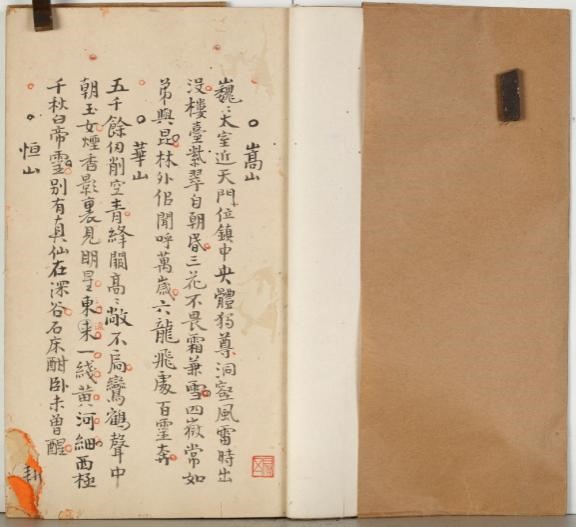 嵩山
巍〻太室近天門位鎮中央體獨尊洞壑風雷時出
沒樓臺紫翠自朝昏三花不畏霜兼雪四嶽常如
弟與昆林外佀聞呼萬歲六龍飛處百靈奔
華山
五千餘仞削空青絳闕高〻敞不扃鸞鶴聲中
朝玉女煙香影裏見明星東來一綫黃河細西極
千秋白帝靈別有真仙在深谷石床酣臥未曾醒
恒山